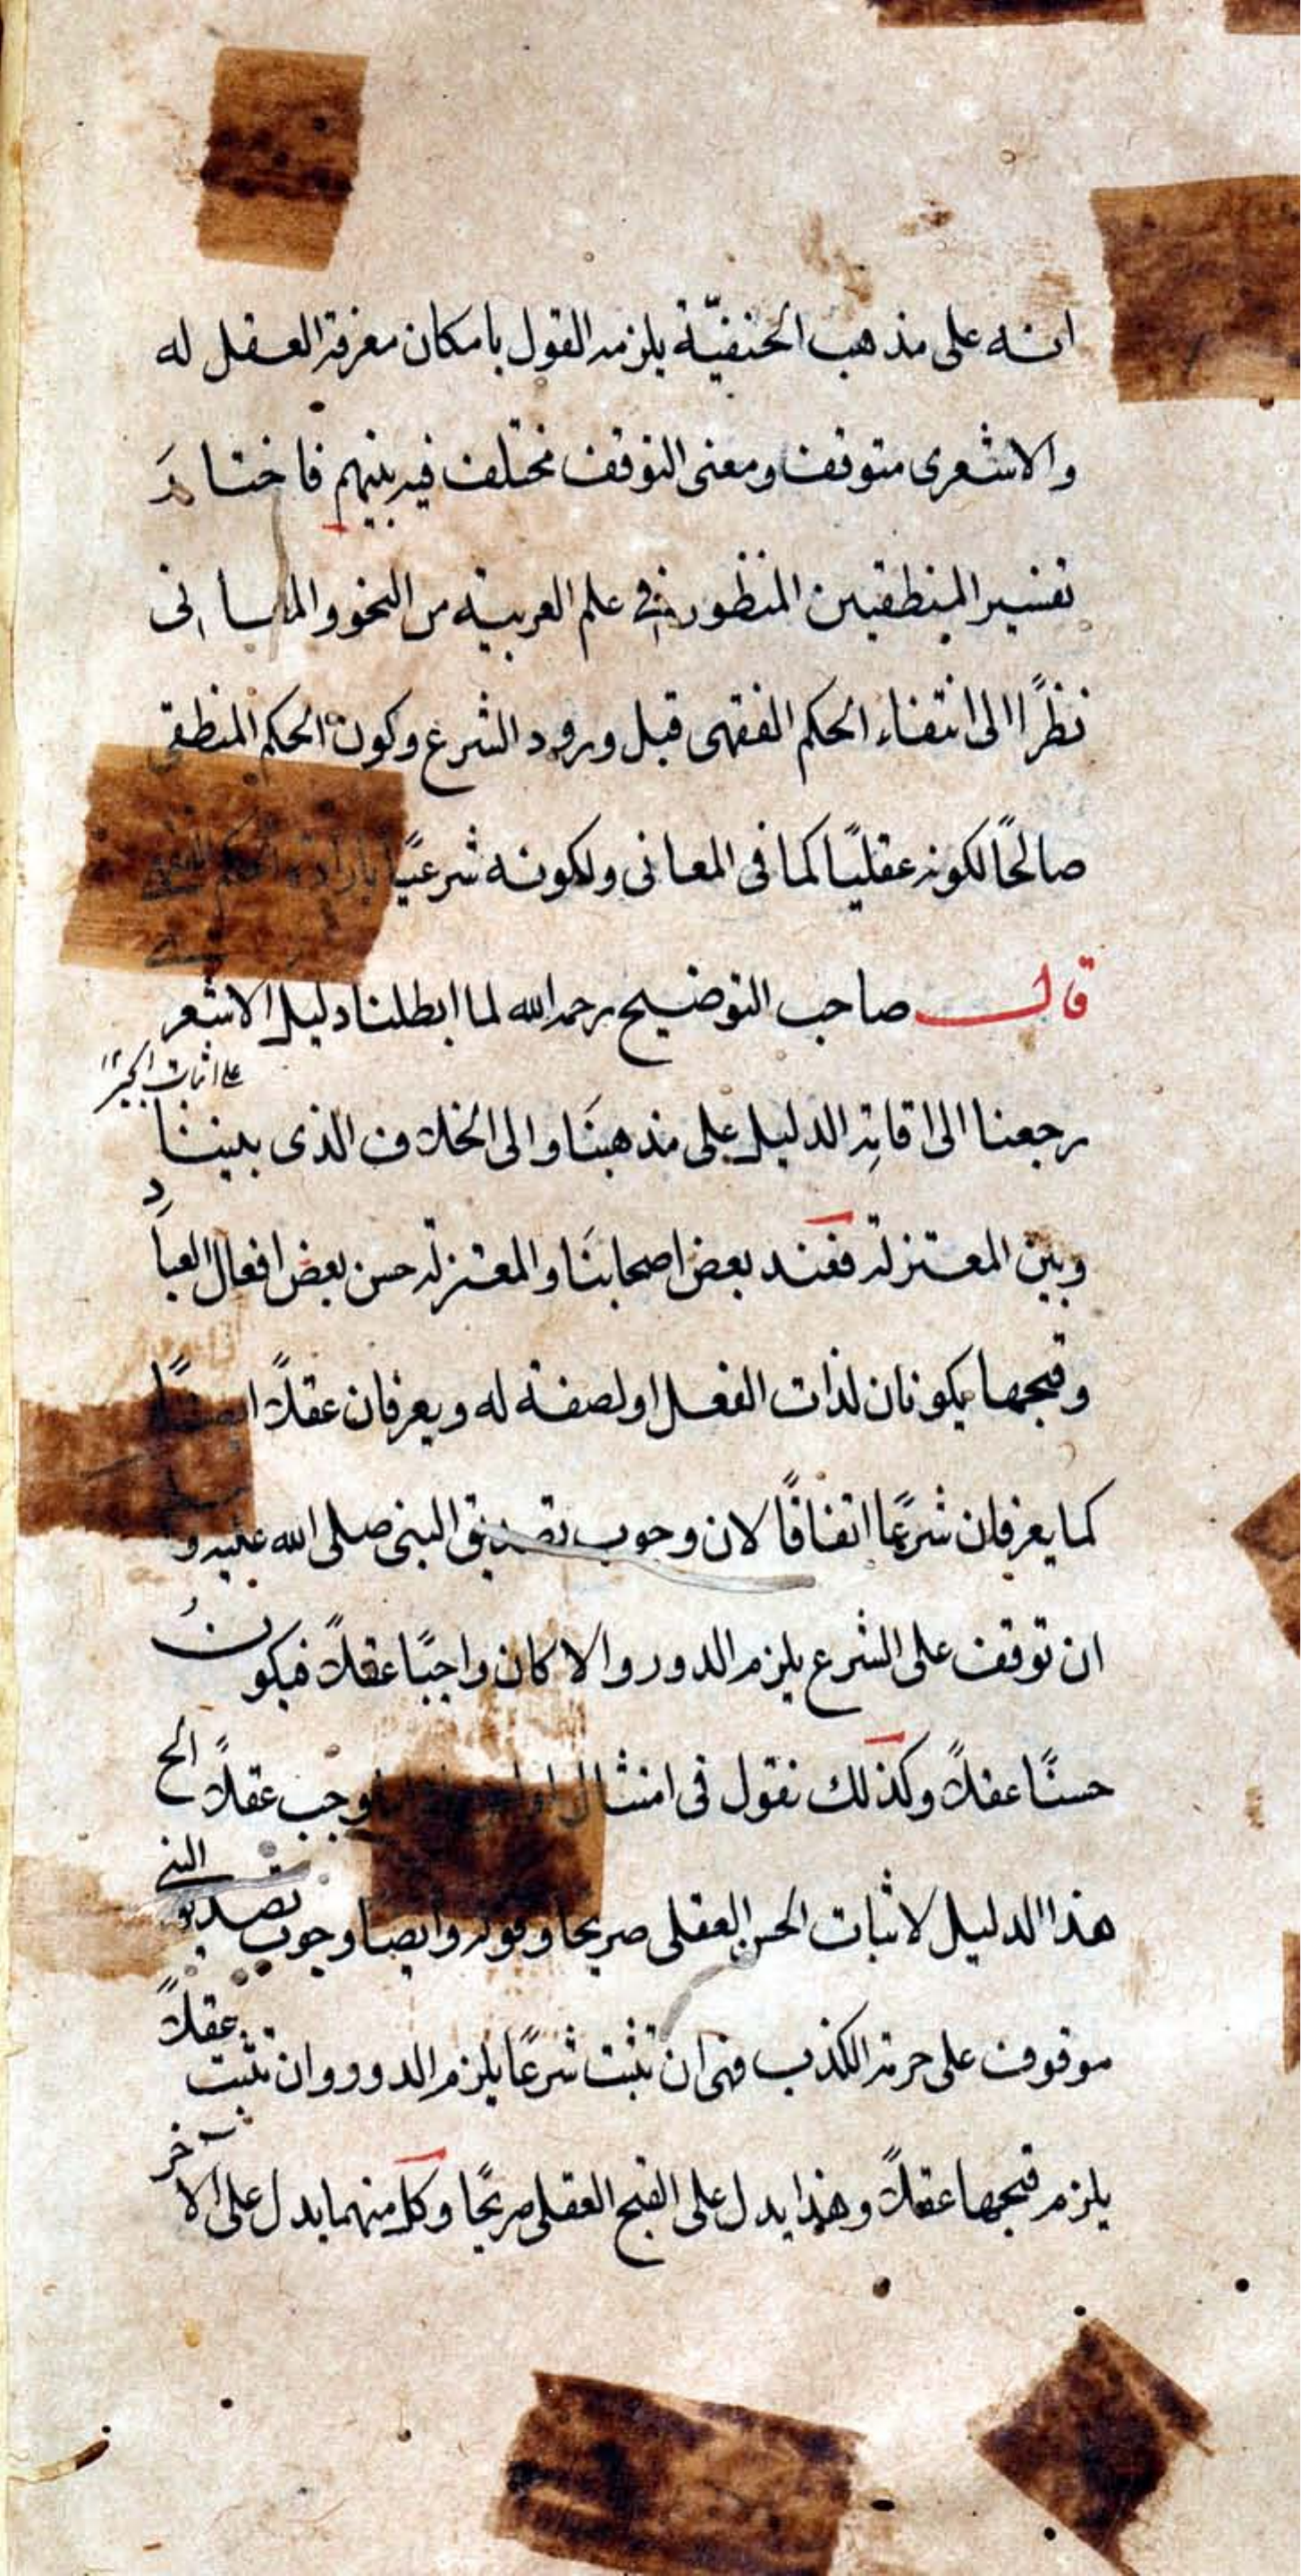 انه على مذهب الحنفيّة يلزمه القول بامكان معرفة العقل له
والاشعرى متوقف ومعنى التوقف مختلف فيه بينهم فاختار
تفسير المنطقيين المنظور فى علم العربية من النحو والمعانى
نظرًا الى انتفاء الحكم الفقهى قبل ورود الشرع وكون الحكم المنطقى
صالحًا لكونه عقليًا كما فى المعانى ولكونه شرعيًا بارادة الحكم
قال صاحب التوضيح رحمه الله لما ابطلنا دليل الاشعر
على اثبات الجبر ١٢
رجعنا الى اقامة الدليل على مذهبنا والى الخلاف الذى بيننا
وبين المعتزلة فعند بعض اصحابنا والمعتزلة حسن بعض افعال العباد
وقبحها يكونان لذات الفعل او لصفة له ويعرفان عقلاً ايضًا
كما يعرفان شرعًا اتفاقًا لان وجوب تصديق النبى صلى الله عليه و
ان توقف على الشرع يلزم الدور والا كان واجبًا عقلاً فيكون
حسنًا عقلاً وكذلك نقول فى امتثال وجب عقلاً الخ
هذا الدليل لاثبات الحسن العقلى صريحا وقوله وايضا وجوب تصديق النبى
موقوف على حرمة الكذب فهى ان تثبت شرعًا يلزم الدور وان تثبت عقلاً
يلزم قبحها عقلاً وهذا يدل على القبح العقلى صريحًا وكل منهما يدل على الآخر